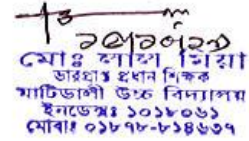 মোঃ লাল মিয়া
ভারপ্রাপ্ত প্রধান শিক্ষক
মাটিডালী উচ্চ বিদ্যালয়
ইনডেক্সঃ ১০১৮০৬১
মোবাঃ ০১৮৭৮-৮১৪৬৩৭